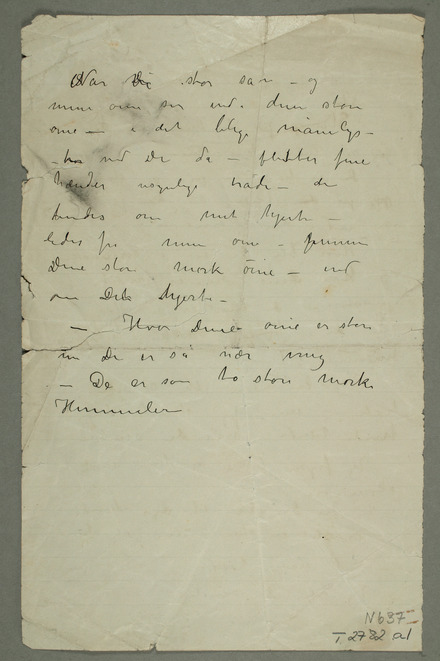 Når Vi står sa – og
mine øine ser ind i dine store
øine – i det blege månelys –
– ved De da – fletter fine
hænder usynlige tråde – der
bindes om mit hjerte –
ledes fra mine øine – gjennem
Dine store mørke öine – ind
om Dit hjerte –
– Hvor Dine øine er store
nu De er så nær mig
– De er som to store mørke
Himmeler
N 637
T 2782 al